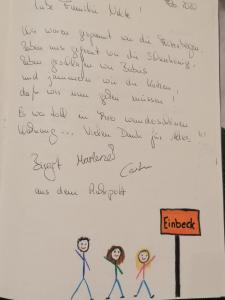 Liebe Familie Nolte!
Feb 2020
Wir waren gespannt wie die Flitzebogen,
haben uns gefreut wie die
haben geschlafen wie Babys
und jammern wie die Katzen,
daß wir nun gehen müssen!
Es war toll in Ihrer wunderschönen
Wohnung... Vielen Dank für Alles
Birgit
aus dem Ruhrpott
Einbeck